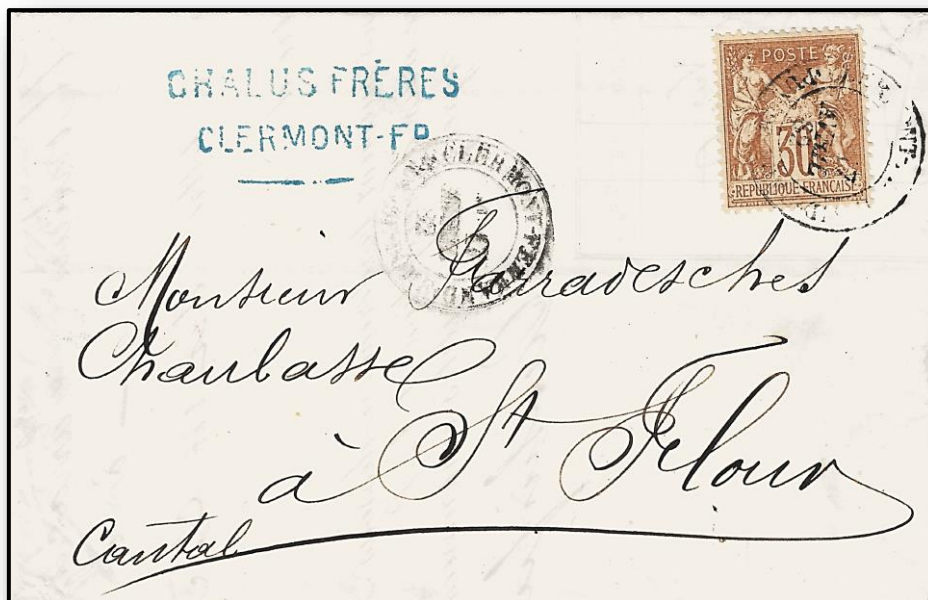 CHALUS FRÈRES
CLERMONT-FD
POSTE
30
REPUBLIQUE FRANCAISE
CLERMONT-FERRAND
Monsieur
Chaulasse
à St Flour
Cantal